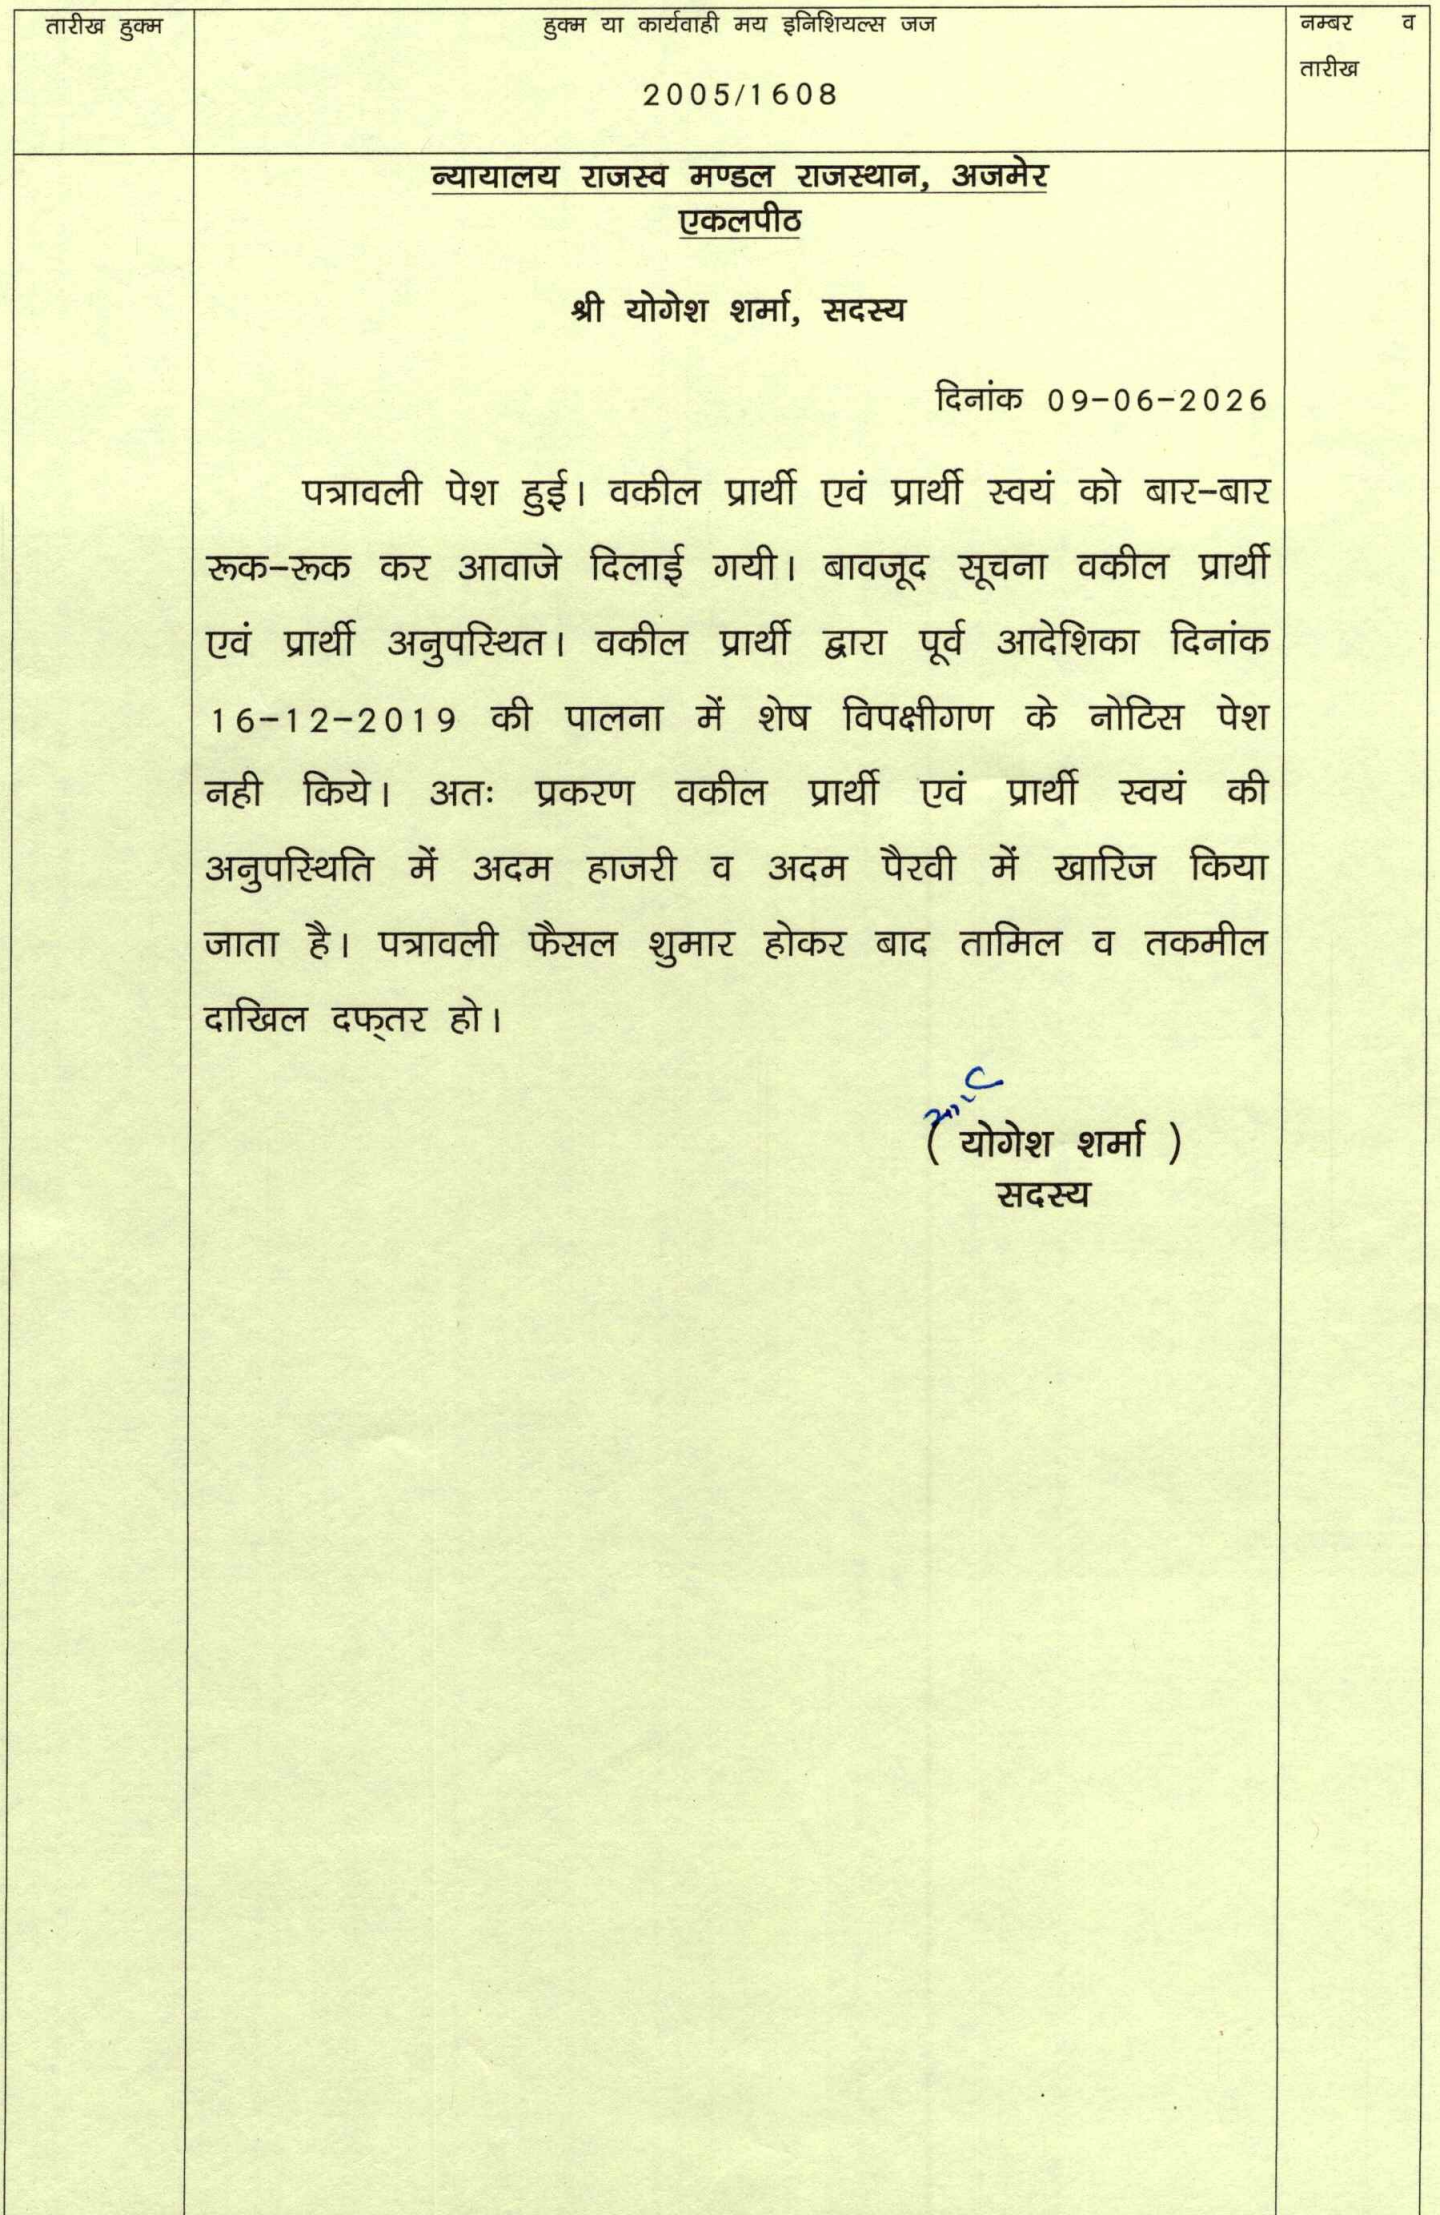 तारीख हुक्म
हुक्म या कार्यवाही मय इनिशियल्स जज
2005/1608
नम्बर व
तारीख
न्यायालय राजस्व मण्डल राजस्थान, अजमेर
एकलपीठ
श्री योगेश शर्मा, सदस्य
दिनांक 09-06-2026
पत्रावली पेश हुई। वकील प्रार्थी एवं प्रार्थी स्वयं को बार-बार
रूक-रूक कर आवाजे दिलाई गयी। बावजूद सूचना वकील प्रार्थी
एवं प्रार्थी अनुपस्थित। वकील प्रार्थी द्वारा पूर्व आदेशिका दिनांक
16-12-2019 की पालना में शेष विपक्षीगण के नोटिस पेश
नही किये। अतः प्रकरण वकील प्रार्थी एवं प्रार्थी स्वयं की
अनुपस्थिति में अदम हाजरी व अदम पैरवी में खारिज किया
जाता है। पत्रावली फैसल शुमार होकर बाद तामिल व तकमील
दाखिल दफ्तर हो।
( योगेश शर्मा )
सदस्य